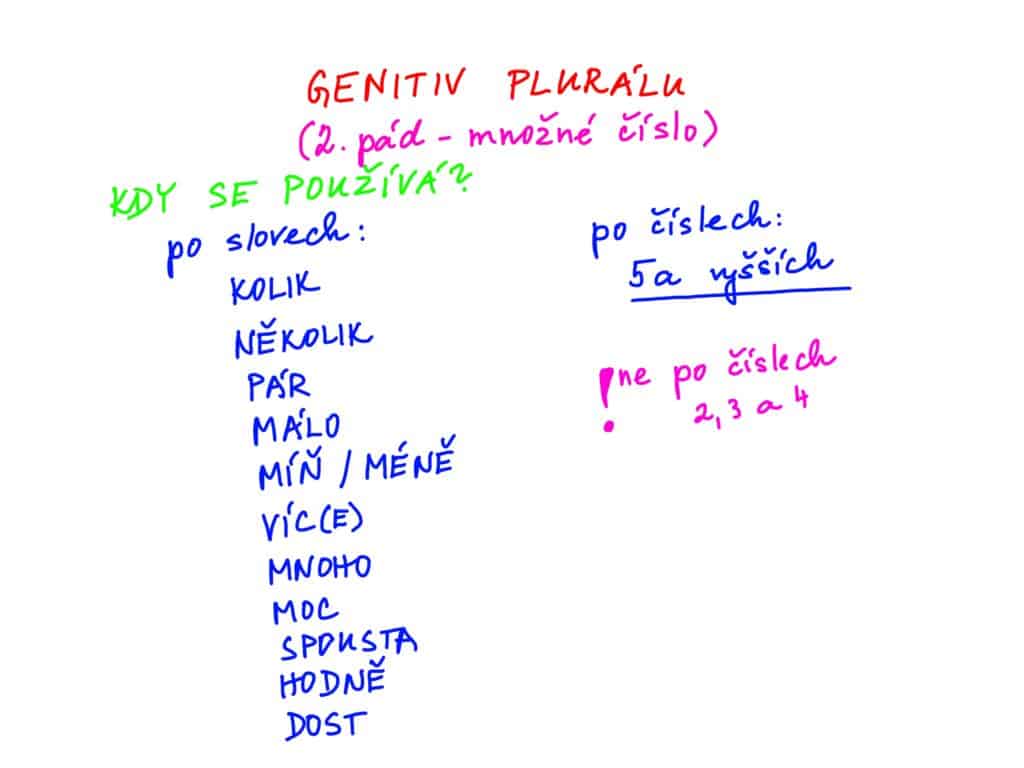 GENITIV PLURÁLU
(2. pád - množné číslo)
KDY SE POUŽÍVÁ?
po slovech:
KOLIK
NĚKOLIK
PÁR
MÁLO
MÍŇ / MÉNĚ
VÍC(E)
MNOHO
MOC
SPOUSTA
HODNĚ
DOST
po číslech:
5 a vyšších
! ne po číslech
2, 3 a 4